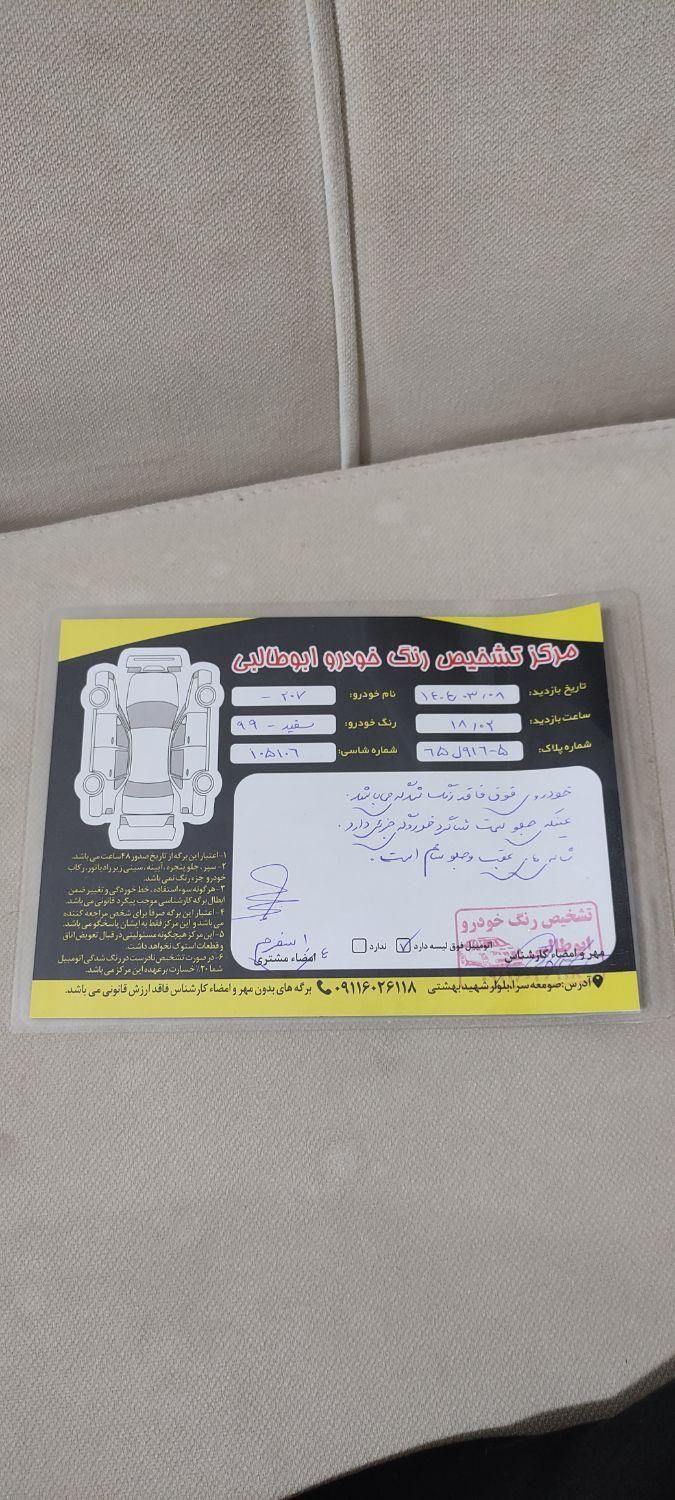 مرکز تشخیص رنگ خودرو ابوطالبی
تاریخ بازدید: ۱۴۰۴/۰۳/۰۸ نام خودرو: ۲۰۷ -
ساعت بازدید: ۱۸/۰۲ رنگ خودرو: سفید - ۹۹
شماره پلاک: ۶۵ل۹۱۶-۵ شماره شاسی: ۱۰۵۱۰۶
خودروی فوق فاقد رنگ شدگی می باشد.
عینکی جلو سمت شاگرد خوردگی جزئی دارد.
شاسی های عقب و جلو سالم است.
اتومبیل فوق لیسه دارد ✓ ندارد
مهر و امضاء کارشناس
امضاء مشتری
تشخیص رنگ خودرو
ابوطالبی
۱- اعتبار این برگه از تاریخ صدور ۴۸ ساعت می باشد.
۲- سپر، جلو پنجره، آیینه، سینی زیر رادیاتور، رکاب
خودرو جزء رنگ نمی باشد.
۳- هرگونه سوء استفاده، خط خوردگی و تغییر ضمن
ابطال برگه کارشناسی موجب پیگرد قانونی می باشد.
۴- اعتبار این برگه صرفاً برای شخص مراجعه کننده
می باشد و این مرکز فقط به ایشان پاسخگو می باشد.
۵- این مرکز هیچگونه مسئولیتی در قبال تعویض اتاق
و قطعات استوک نخواهد داشت.
۶- در صورت تشخیص نادرست دو رنگ شدگی اتومبیل
شما ۲۰٪ خسارت بر عهده این مرکز می باشد.
آدرس: صومعه سرا، بلوار شهید بهشتی ۰۹۱۱۶۰۲۶۱۱۸ برگه های بدون مهر و امضاء کارشناس فاقد ارزش قانونی می باشد.